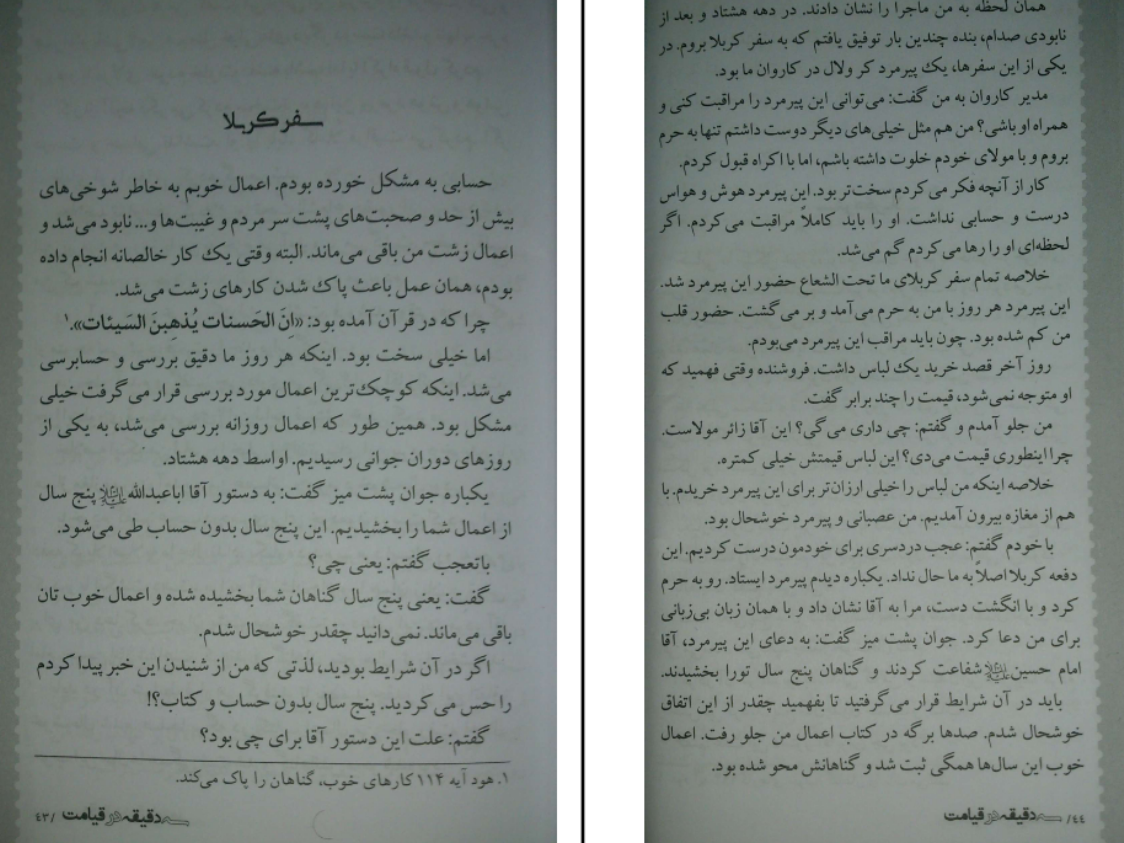 سفر کربلا
حسابی به مشکل خورده بودم. اعمال خوبم به خاطر شوخی‌های
بیش از حد و صحبت‌های پشت سر مردم و غیبت‌ها و... نابود می‌شد و
اعمال زشت من باقی می‌ماند. البته وقتی یک کار خالصانه انجام داده
بودم، همان عمل باعث پاک شدن کارهای زشت می‌شد.
چرا که در قرآن آمده بود: «اِنَ الحَسنات یُذهِبنَ السَیئات».۱
اما خیلی سخت بود. اینکه هر روز ما دقیق بررسی و حسابرسی
می‌شد. اینکه کوچک‌ترین اعمال مورد بررسی قرار می‌گرفت خیلی
مشکل بود. همین طور که اعمال روزانه بررسی می‌شد، به یکی از
روزهای دوران جوانی رسیدیم. اواسط دهه هشتاد.
یکباره جوان پشت میز گفت: به دستور آقا اباعبدالله پنج سال
از اعمال شما را بخشیدیم. این پنج سال بدون حساب طی می‌شود.
باتعجب گفتم: یعنی چی؟
گفت: یعنی پنج سال گناهان شما بخشیده شده و اعمال خوب تان
باقی می‌ماند. نمی‌دانید چقدر خوشحال شدم.
اگر در آن شرایط بودید، لذتی که من از شنیدن این خبر پیدا کردم
را حس می‌کردید. پنج سال بدون حساب و کتاب؟!
گفتم: علت این دستور آقا برای چی بود؟
۱. هود آیه ۱۱۴ کارهای خوب، گناهان را پاک می‌کند.
سه دقیقه در قیامت /۴۳
همان لحظه به من ماجرا را نشان دادند. در دهه هشتاد و بعد از
نابودی صدام، بنده چندین بار توفیق یافتم که به سفر کربلا بروم. در
یکی از این سفرها، یک پیرمرد کر ولال در کاروان ما بود.
مدیر کاروان به من گفت: می‌توانی این پیرمرد را مراقبت کنی و
همراه او باشی؟ من هم مثل خیلی‌های دیگر دوست داشتم تنها به حرم
بروم و با مولای خودم خلوت داشته باشم، اما با اکراه قبول کردم.
کار از آنچه فکر می‌کردم سخت‌تر بود. این پیرمرد هوش و هواس
درست و حسابی نداشت. او را باید کاملاً مراقبت می‌کردم. اگر
لحظه‌ای او را رها می‌کردم گم می‌شد.
خلاصه تمام سفر کربلای ما تحت الشعاع حضور این پیرمرد شد.
این پیرمرد هر روز با من به حرم می‌آمد و بر می‌گشت. حضور قلب
من کم شده بود. چون باید مراقب این پیرمرد می‌بودم.
روز آخر قصد خرید یک لباس داشت. فروشنده وقتی فهمید که
او متوجه نمی‌شود، قیمت را چند برابر گفت.
من جلو آمدم و گفتم: چی داری می‌گی؟ این آقا زائر مولاست.
چرا اینطوری قیمت می‌دی؟ این لباس قیمتش خیلی کمتره.
خلاصه اینکه من لباس را خیلی ارزان‌تر برای این پیرمرد خریدم. با
هم از مغازه بیرون آمدیم. من عصبانی و پیرمرد خوشحال بود.
با خودم گفتم: عجب دردسری برای خودمون درست کردیم. این
دفعه کربلا اصلاً به ما حال نداد. یکباره دیدم پیرمرد ایستاد. رو به حرم
کرد و با انگشت دست، مرا به آقا نشان داد و با همان زبان بی‌زبانی
برای من دعا کرد. جوان پشت میز گفت: به دعای این پیرمرد، آقا
امام حسین شفاعت کردند و گناهان پنج سال تورا بخشیدند.
باید در آن شرایط قرار می‌گرفتید تا بفهمید چقدر از این اتفاق
خوشحال شدم. صدها برگه در کتاب اعمال من جلو رفت. اعمال
خوب این سال‌ها همگی ثبت شد و گناهانش محو شده بود.
۴۴/ سه دقیقه در قیامت